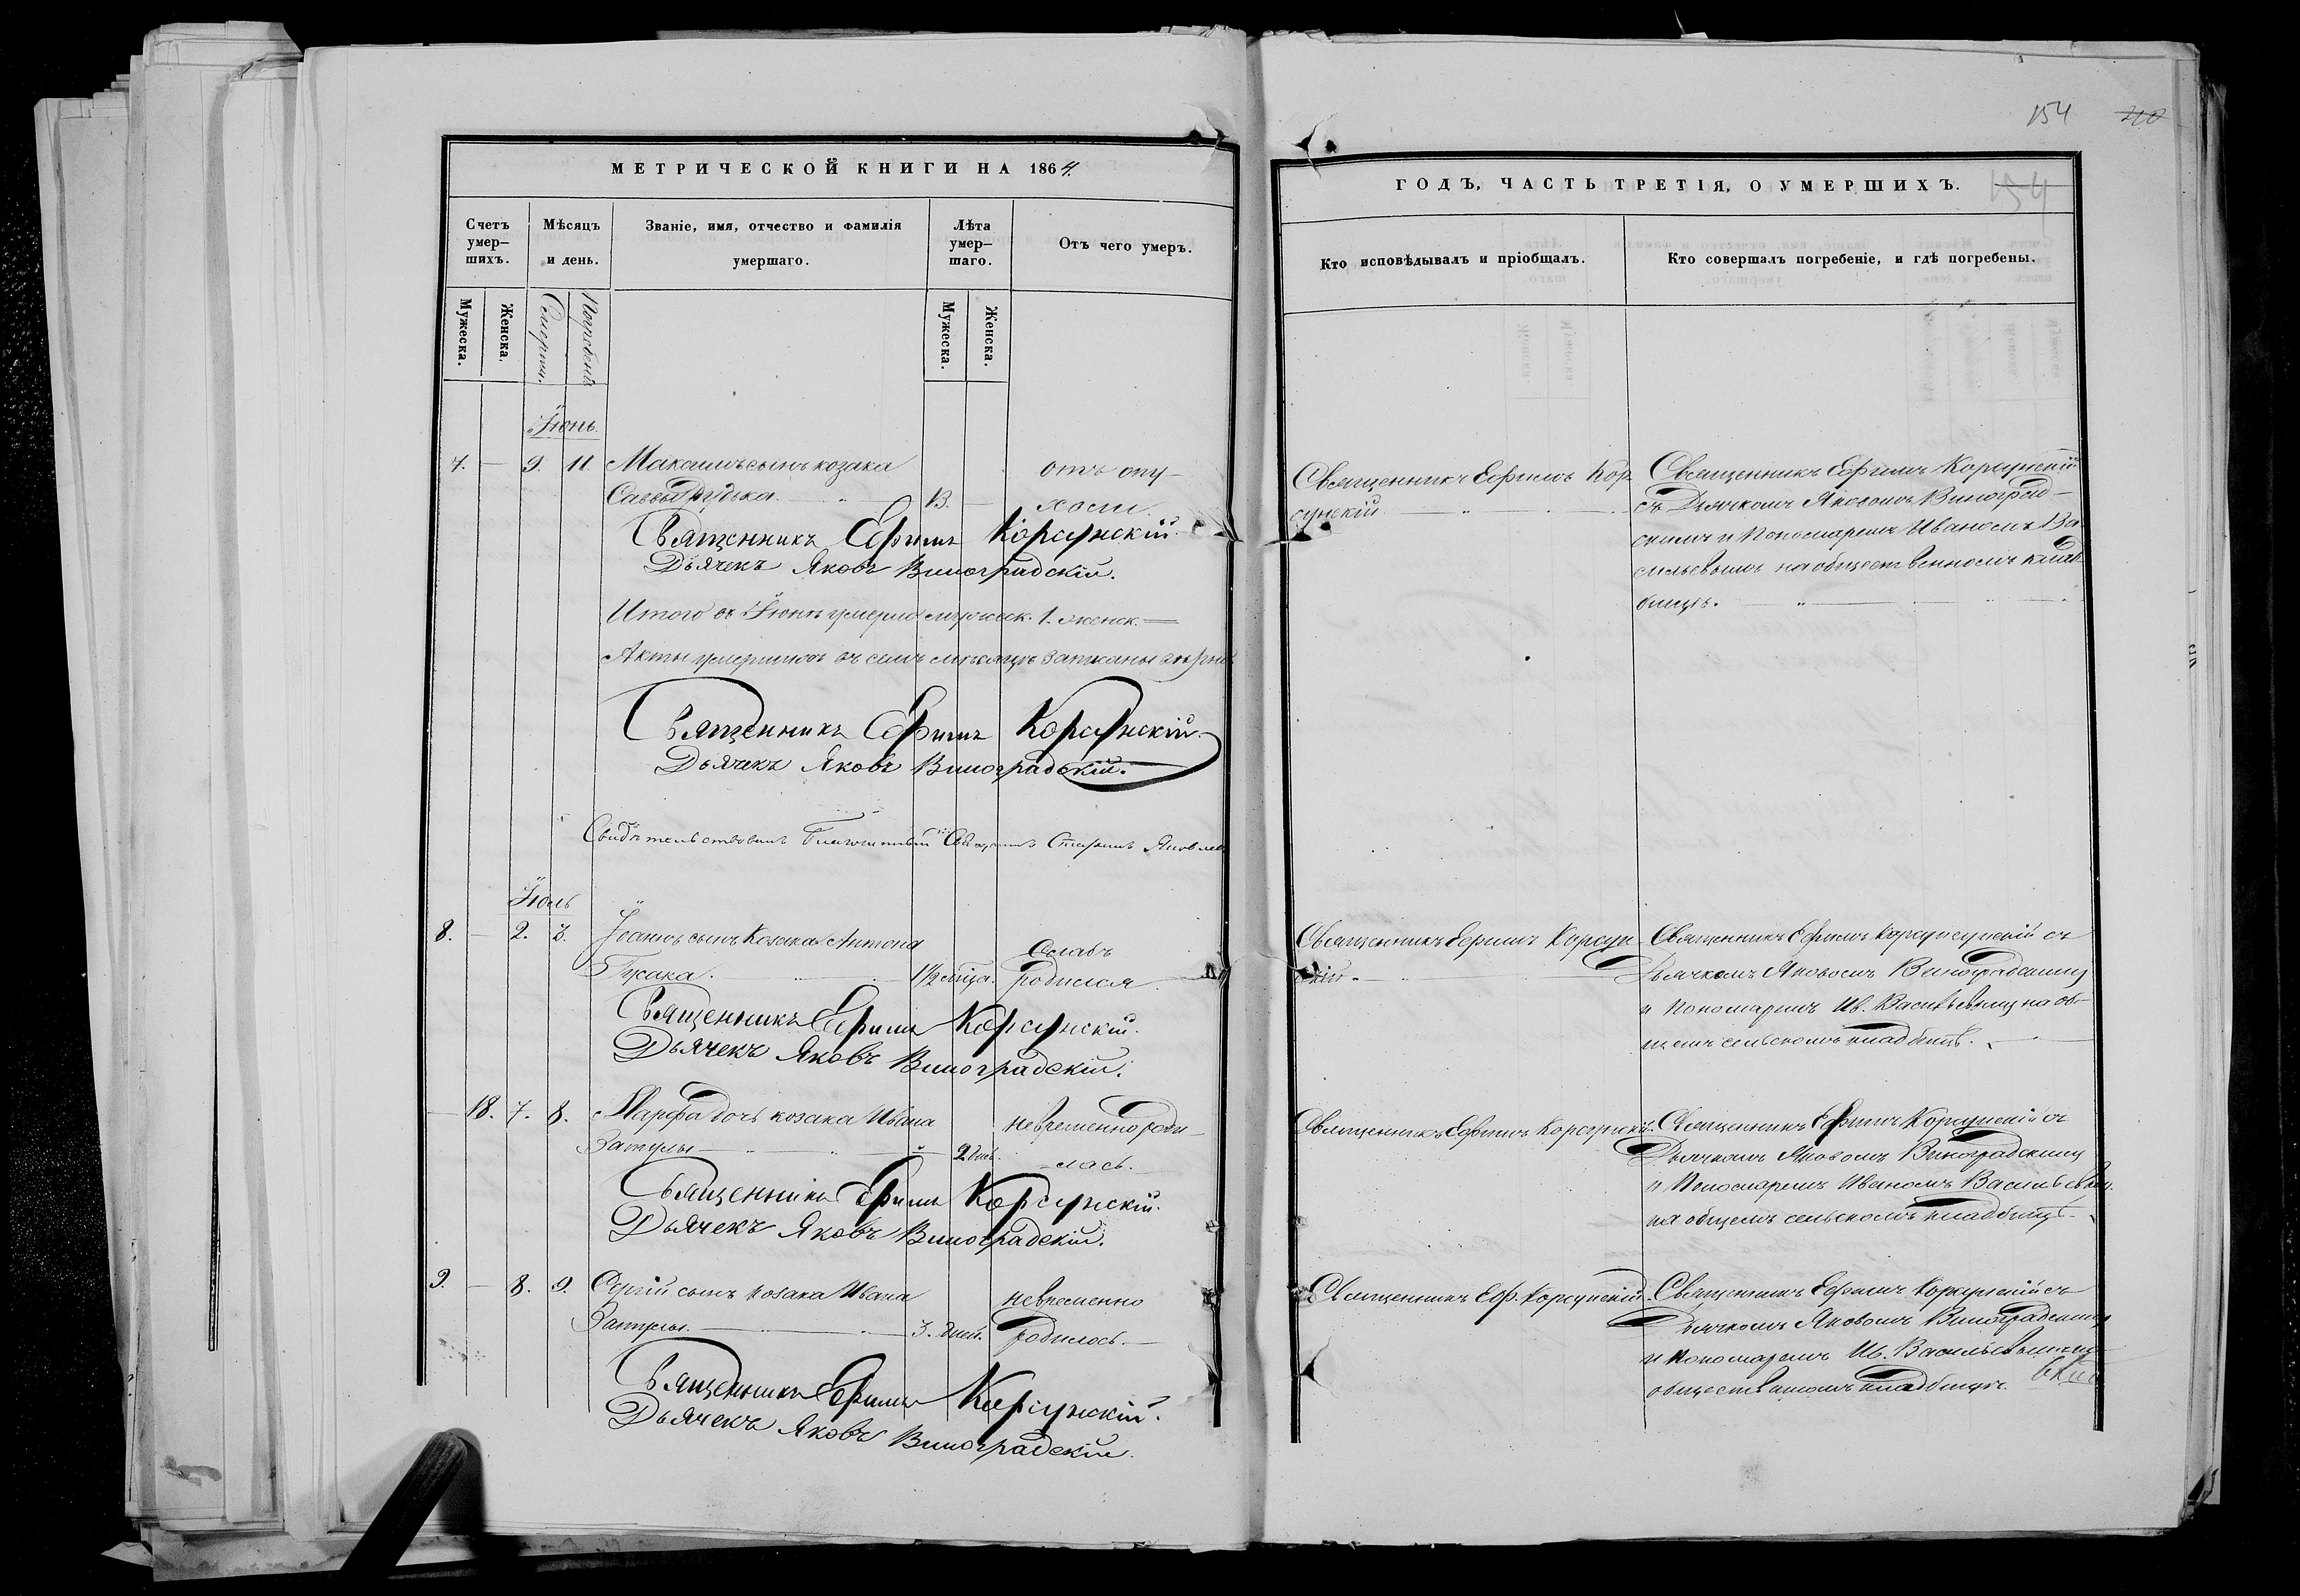 154
МЕТРИЧЕСКОЙ КНИГИ НА 1864.
Счетъ умер-шихъ.
Мѣсяцъ и день.
Званіе, имя, отчество и фамилія умершаго.
Лѣта умер-шаго.
Отъ чего умеръ.
Мужеска.
Женска.
Смерти.
Погребенія
Мужеска.
Женска.
Іюнь.
7. — 9. 11. Максимъ сынъ козака отъ опу-
Саввы 13. — холи.
Священникъ Ефимъ Корсунскій.
Дьячекъ Яковъ Виноградскій.
Итого въ Іюнѣ умерло мужеск. 1. женск. —
Акты умершихъ въ семъ мѣсяцѣ записаны вѣрно
Священникъ Ефимъ Корсунскій.
Дьячекъ Яковъ Виноградскій.
Свидѣтельствовалъ Благочинный Священникъ Яковлев
Іюль
8. — 2. 3. Іоаннъ сынъ Козака Антона Слабъ
Гусака. 1½ мѣца. родился
Священникъ Ефимъ Корсунскій.
Дьячекъ Яковъ Виноградскій.
— 18. 7. 8. Марфа дочь козака Ивана невременно роди-
Затулы — 2 дней. лась.
Священникъ Ефимъ Корсунскій.
Дьячекъ Яковъ Виноградскій.
9. — 8. 9. Сергій сынъ козака Ивана невременно
Затулы. — 3. дней. родилось. —
Священникъ Ефимъ Корсунскій.
Дьячекъ Яковъ Виноградскій.
ГОДЪ, ЧАСТЬ ТРЕТІЯ, О УМЕРШИХЪ.
154
Кто исповѣдывалъ и пріобщалъ.
Кто совершалъ погребеніе, и гдѣ погребены.
Священникъ Ефимъ Кор-
сунскій
Священникъ Ефимъ Корсунскій
съ Дьячкомъ Яковомъ Виноград-
скимъ и Пономаремъ Иваномъ Ва
сильевымъ на общественномъ клад-
бищѣ.
Священникъ Ефимъ Корсун
скій.
Священникъ Ефимъ Корсунсунскій съ
Дьячкомъ Яковомъ Виноградскимъ
и Пономаремъ Ив. Васильевымъ на об-
щемъ сельскомъ кладбищѣ.
Священникъ Ефимъ Корсунскій.
Священникъ Ефимъ Корсунскій съ
Дьячкомъ Яковомъ Виноградскимъ
и Пономаремъ Иваномъ Васильевым.
на общемъ сельскомъ кладбищѣ.
Священникъ Еф. Корсунскій.
Священникъ Ефимъ Корсунскій съ
Дьячкомъ Яковомъ Виноградскимъ
и Пономаремъ Ив. Васильевымъ на
общественномъ кладбищѣ.